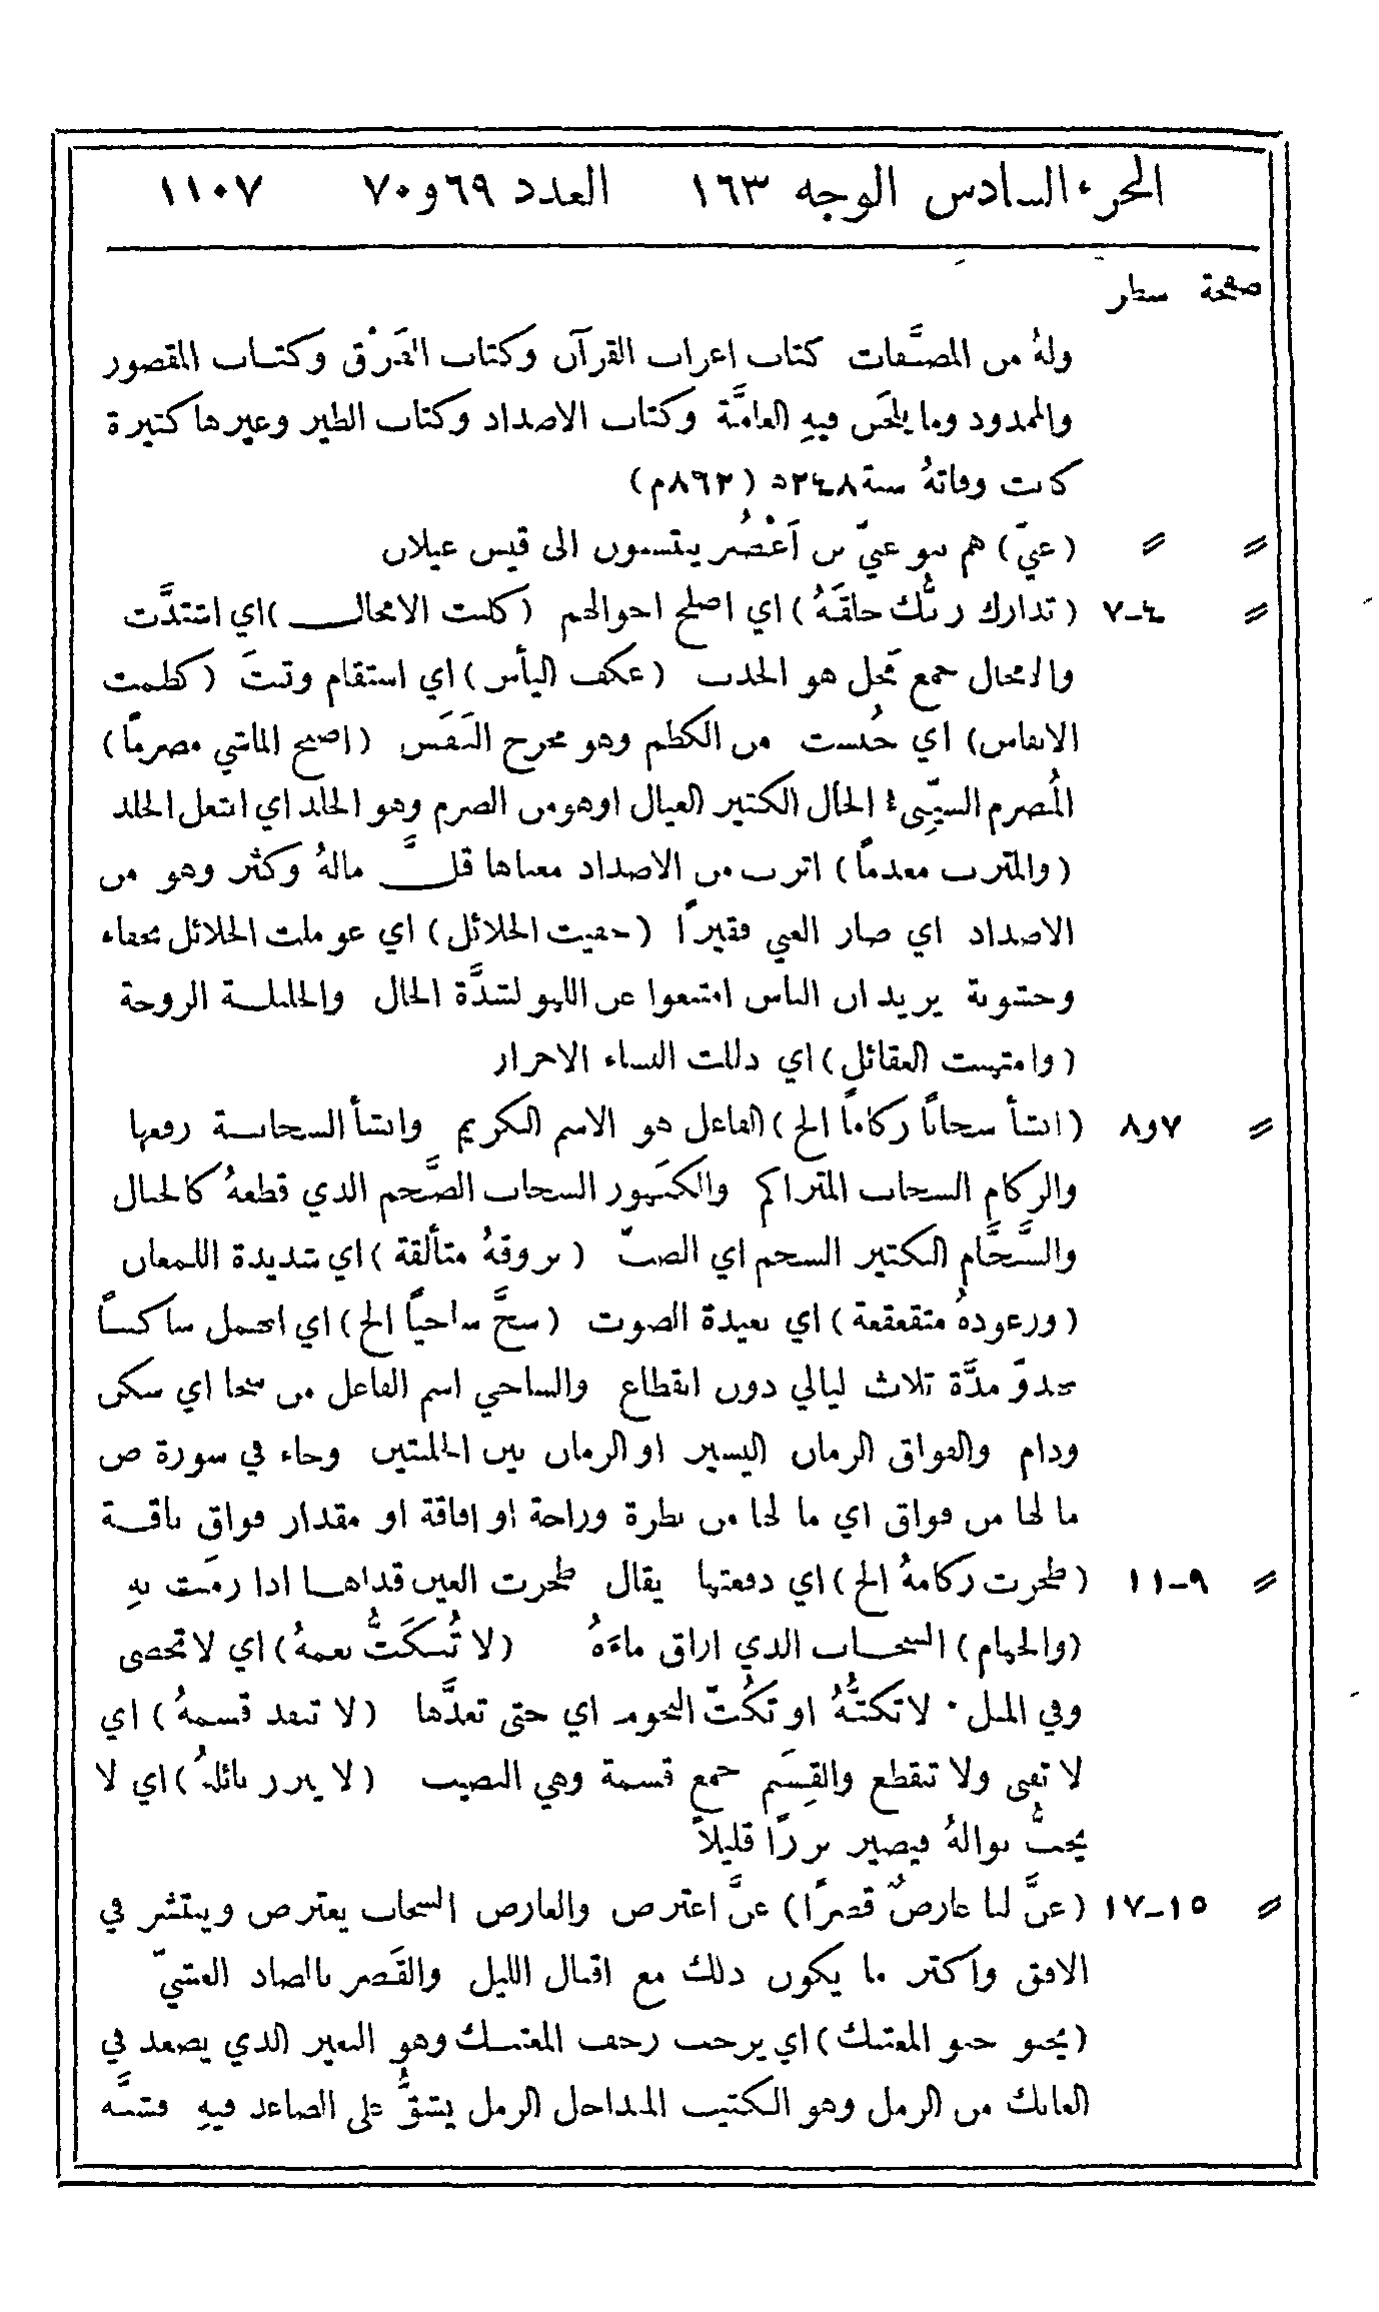 الجزء السادس الوجه ١٦٣ العدد ٦٩ و٧٠ ١١٠٧
صفحة سطر
ولهُ من المصنَّفات كتاب اعراب القرآن وكتاب الفَرْق وكتاب المقصور
والممدود وما يلحَن فيهِ العامَّة وكتاب الاضداد وكتاب الطير وغيرها كثيرة
كانت وفاتهُ سنة ٢٤٨ه (٨٦٢م)
〃 〃 (غنيّ) هم بنو غنيّ بن اَعْصُر ينتسبون الى قيس عيلان
〃 ٤-٧ (تدارك ربُّك خلقَهُ) اي اصلح احوالهم (كلبت الامحال) اي اشتدَّت
والامحال جمع مَحْل هو الجدب (عكف البأس) اي استقام وثبتَ (كظمت
الانفاس) اي حُبست من الكظم وهو مخرج النَفَس (اصبح الماشي مصرمًا)
المُصرم السيّئ الحال الكثير العيال او هو من الصرم وهو الجلد اي انتعل الجلد
(والمترب معدمًا) اترب من الاضداد معناها قلَّ مالهُ وكثر وهو من
الاضداد اي صار الغني فقيرًا (جفيت الحلائل) اي عوملت الحلائل بجفاء
وخشونة يريد ان الناس امتنعوا عن اللهو لشدَّة الحال والحليلة الزوجة
(وامتهنت العقائل) اي ذللت النساء الاحرار
〃 ٧و٨ (انشأ سحابًا ركامًا الخ) الفاعل هو الاسم الكريم وانشأ السحابة رفعها
والركام السحاب المتراكم والكَنَهور السحاب الضَّخم الذي قطعهُ كالجبال
والسَّجَّام الكثير السجم اي الصبّ (بروقهُ متألقة) اي شديدة اللمعان
(ورعودهُ متقعقعة) اي بعيدة الصوت (سحَّ ساجيًا الخ) اي انهمل ساكبًا
بجدوّ مدَّة ثلاث ليالي دون انقطاع والساجي اسم الفاعل من سجا اي سكن
ودام والفواق الزمان اليسير او الزمان بين الحلبتين وجاء في سورة ص
ما لها من فواق اي ما لها من نظرة وراحة او افاقة او مقدار فواق ناقة
〃 ٩-١١ (طحرت ركامهُ الخ) اي دفعتها يقال طحرت العين قذاها اذا رمَت بهِ
(والجهام) السحاب الذي اراق ماءَهُ (لا تُكَتُّ نعمهُ) اي لا تحصى
وفي المثل. لا تكتُّهُ او تكُتّ النجوم اي حتى تعدَّها (لا تنفد قسمهُ) اي
لا تفنى ولا تنقطع والقِسَم جمع قسمة وهي النصيب (لا ينزر نائلهُ) اي لا
نوالهُ فيصير نزرًا قليلاً
〃 ١٥-١٧ (عنَّ لنا عارضٌ قصرًا) عنَّ اعترض والعارض السحاب يعترض وينتشر في
الافق واكثر ما يكون ذلك مع اقبال الليل والقَصر بالصاد العشيّ
(يحبو حبو المعتنك) اي يزحف زحف المعتنك وهو البعير الذي يصعد في
العانك من الرمل وهو الكثيب المتداخل الرمل يشقُّ على الصاعد فيهِ فشبَّه